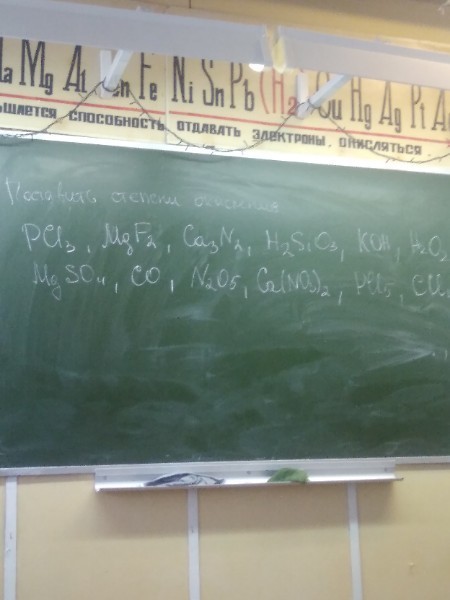 Mg Al Zn Fe Ni Sn Pb (H2) Cu Hg Ag Pt
СПОСОБНОСТЬ ОТДАВАТЬ ЭЛЕКТРОНЫ, ОКИСЛЯТЬСЯ
Расставить степени окисления
PCl3, MgF2, Ca3N2, H2SiO3, KOH, H2O2
MgSO4, CO, N2O5, Ca(NO3)2, PCl5,